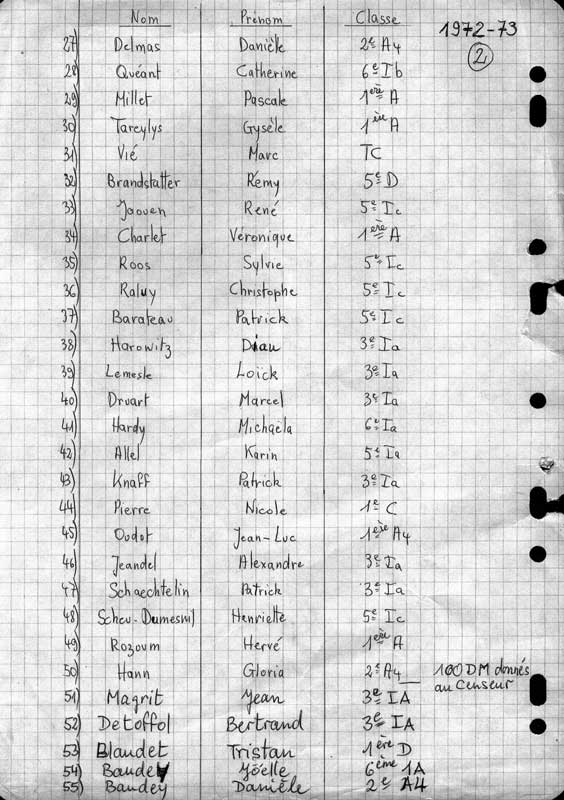 Nom Prénom Classe 1972-73
2
27) Delmas Danièle 2e A4
28) Quéant Catherine 6e Ib
29) Millet Pascale 1ère A
30) Tareylys Gysèle 1ère A
31) Vié Marc TC
32) Brandstatter Rémy 5e D
33) Joouen René 5e Ic
34) Charlet Véronique 1ère A
35) Roos Sylvie 5e Ic
36) Raluy Christophe 5e Ic
37) Barateau Patrick 5e Ic
38) Harowitz Dian 3e Ia
39) Lemesle Loïck 3e Ia
40) Druart Marcel 3e Ia
41) Hardy Michaëla 6e Ia
42) Allel Karin 5e Ia
43) Knaff Patrick 3e Ia
44) Pierre Nicole 1e C
45) Oudot Jean-Luc 1ère A4
46) Jeandel Alexandre 3e Ia
47) Schaechtelin Patrick 3e Ia
48) Scheu-Dumesnil Henriette 5e Ic
49) Rozoum Hervé 1ère A
50) Hann Gloria 2e A4 100 DM donnés
au Censeur
51) Magrit Jean 3e IA
52) Detoffol Bertrand 3e IA
53) Blaudet Tristan 1ère D
54) Joëlle 6ème 1A
55) Baudey Danièle 2e A4